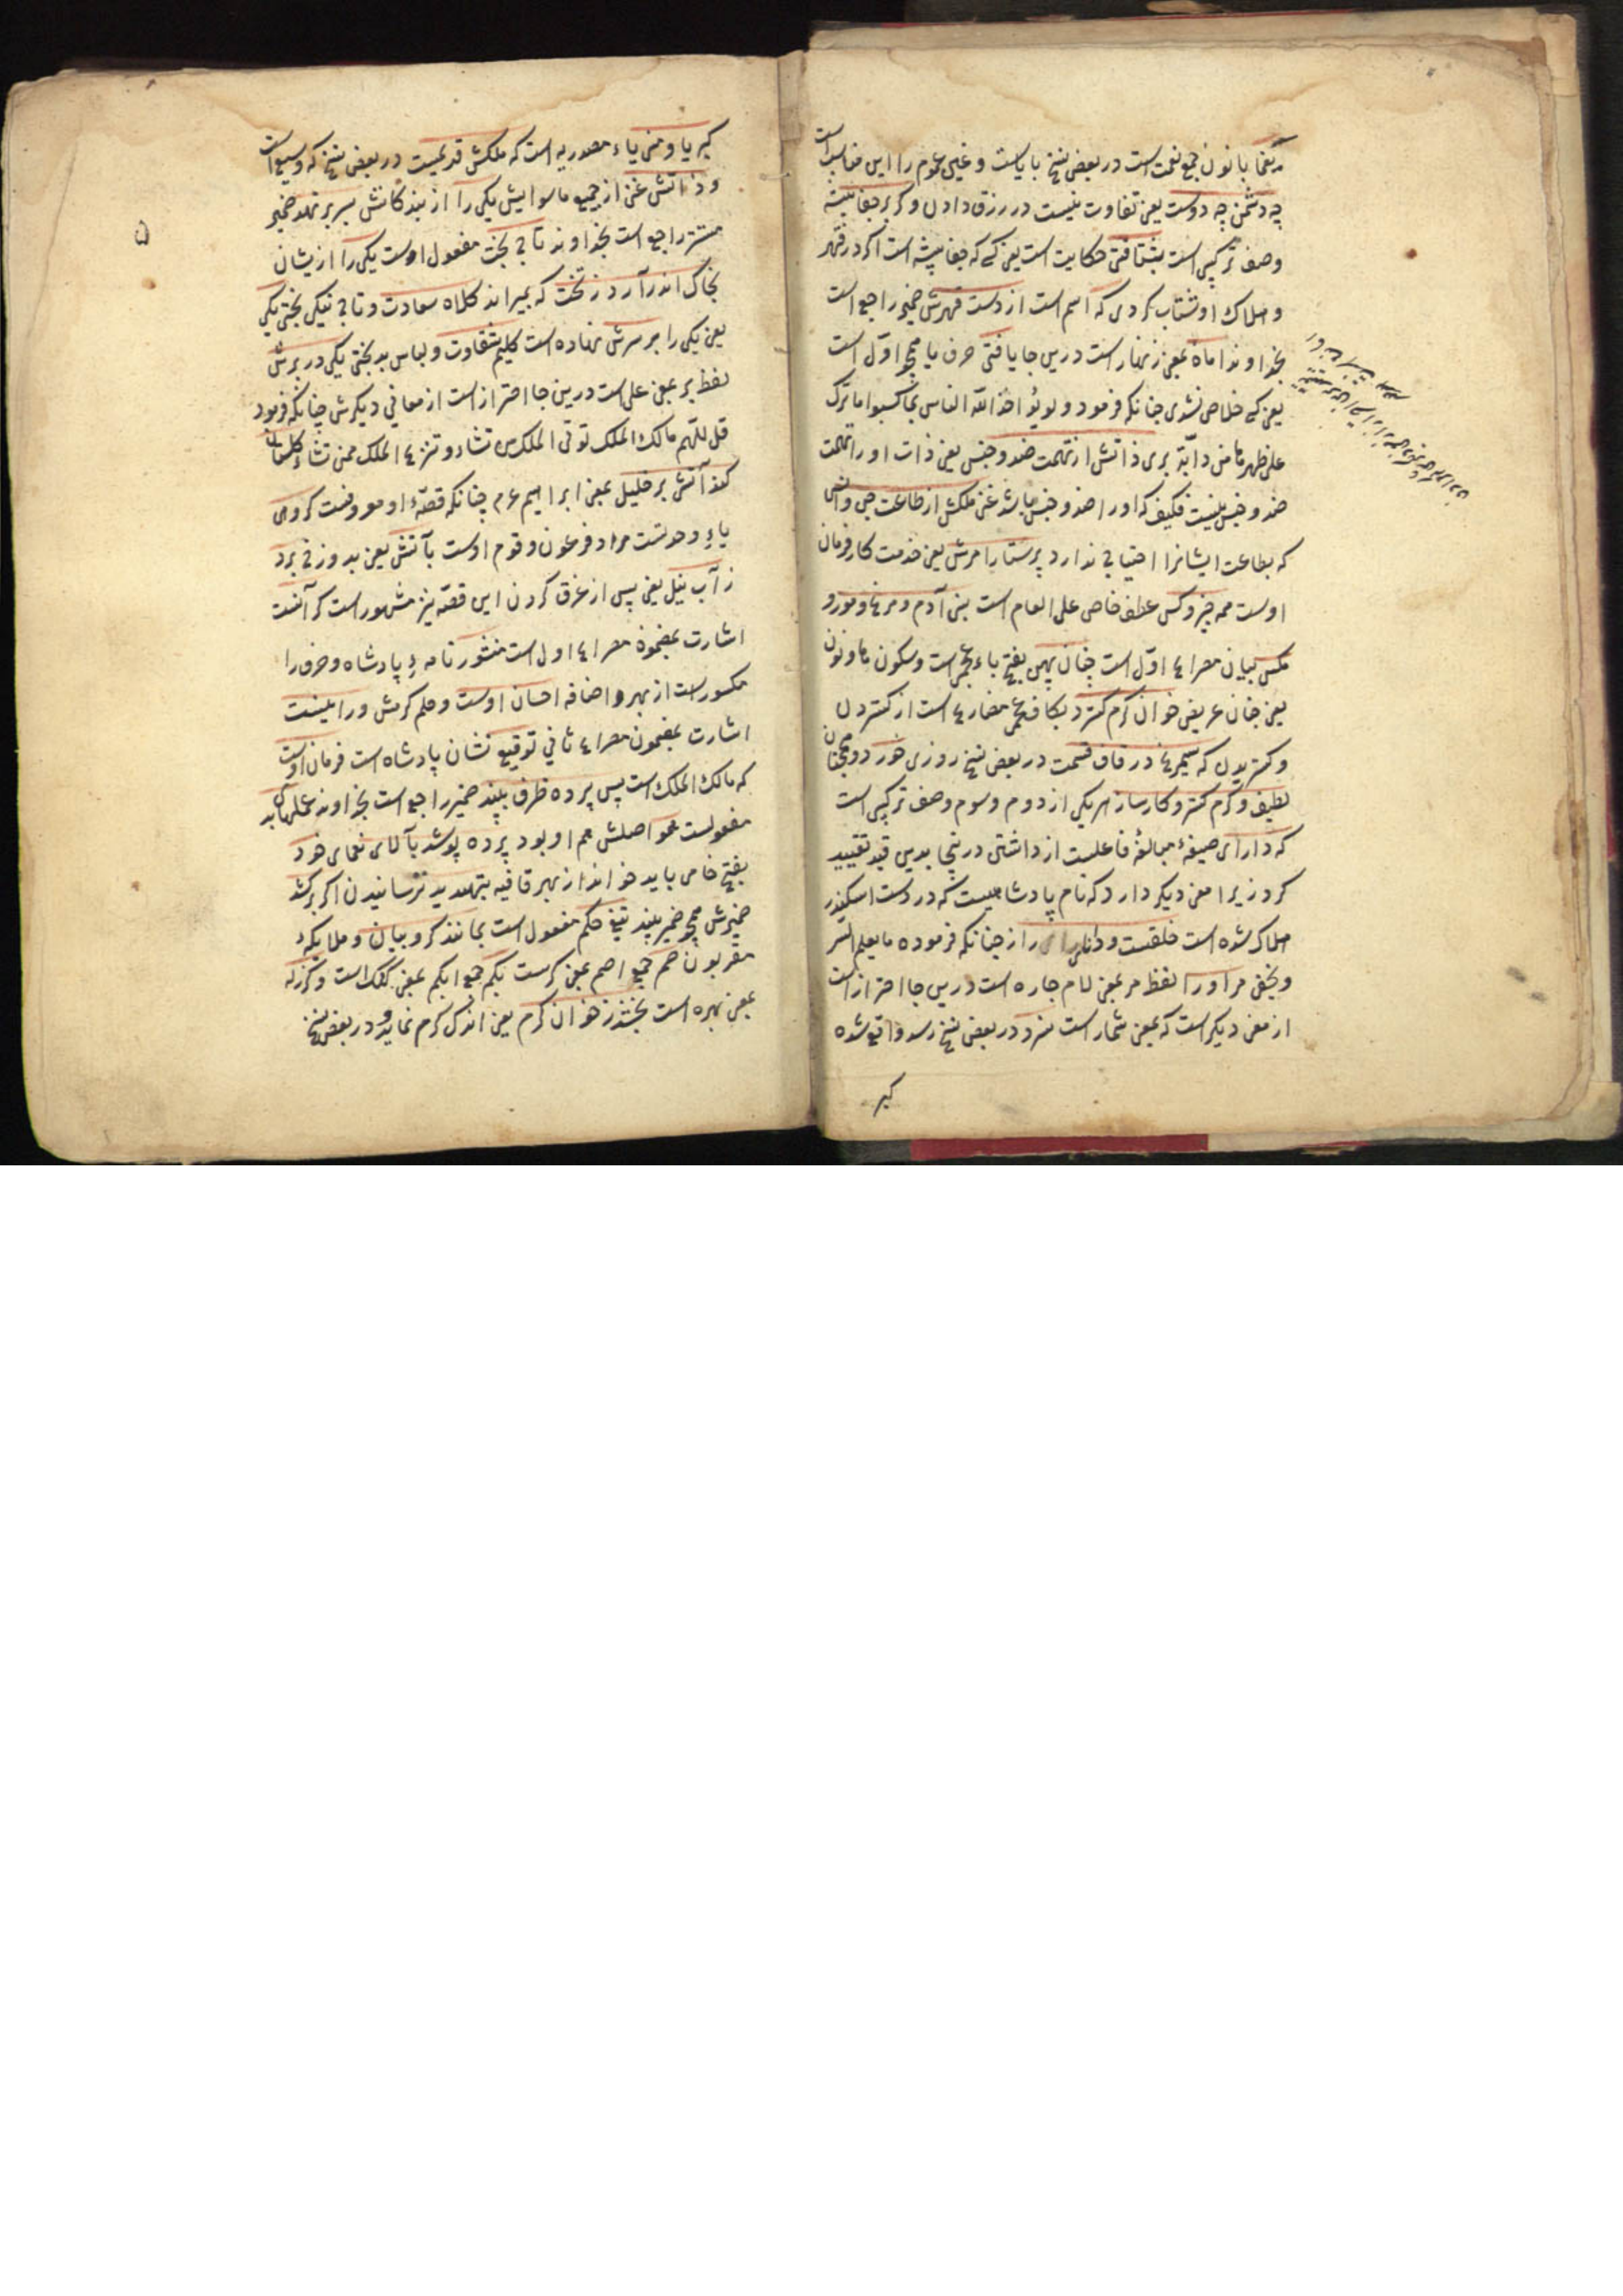 بر یغما با نون جمع نعمت است در بعض نسخ با یاست و غیی عموم را این مناسب است
چه دشمن چه دوست یعنی تفاوت نیست در رزق دادن و کر بر جفا پیشه
وصف ترکیبی است بشتافتی حکایت است یعنی کسی که جفا پیشه است اکر در قهر
و هلاک او شتاب کردی که اسم است از دست قهرش ضمیر راجع است
بخداوند امان بمعنی زنهار است درین جا یافتی حرف یا همچو اول است
یعنی کسی خلاص نشدی چنانکه فرمود و لو یؤاخذ الله الناس بما کسبوا ما ترک
علی ظهرها من دابة بری ذاتش از تهمت ضد و جنس یعنی ذات او را تهمت
ضد و جنس نیست فکیف که او را ضد و جنس باشد غنی ملکش از طاعت جن و انس
که بطاعت ایشانرا احتیاجی ندارد پرستار امرش یعنی خدمت کار فرمان
اوست همه چیز و کس عطف خاص علی العام است بنی آدم و مرغ و مور و
مکس بیان مصراع اول است چنان پهن بفتح باء عجمی است و سکون ها و نون
یعنی چنان عریض خوان کرم کسترد بکاف عجمی مضارع است از کستردن
و کستریدن که سیمرغ در قاف قسمت در بعض نسخ روزی خورد و همچنان
لطیف و کرم کستر و کارساز هر یکی از دوم و سوم وصف ترکیبی است
که دارای صیغهٔ مبالغهٔ فاعلیست از داشتن در ینجا بدین قید تقیید
کرد زیرا معنی دیکر دارد که نام پادشاهیست که در دست اسکندر
هلاک شده است خلقست و دانای راز چنانکه فرموده ما یعلم السر
و یخفی مر او را لفظ مر بمعنی لام جاره است درین جا احتراز است
از معنی دیکر است که بمعنی شمار است سزد در بعض نسخ رسد واقع شده
کبر
کبریا و منی یاء مصدریه است که ملکش قدیمست در بعض نسخ که وسیع است
و ذاتش غنی از جمیع ماسوایش یکی را از بندکانش بسر بر نهد ضمیر
مستتر راجع است بخداوند تاج بخت مفعول اوست یکی را از یشان
بخاک اندر آرد ز تخت که بمیراند کلاه سعادت و تاج نیکی بختی یکی
یعنی یکی را بر سرش نهاده است کلیم شقاوت و لباس بدبختی یکی در برش
لفظ بر بمعنی علی است درین جا احتراز است از معانی دیکرش چنانکه فرمود
قل اللهم مالک الملک توتی الملک من تشاء و تنزع الملک ممن تشاء کلستان
کند آتش بر خلیل بمعنی ابراهیم عم چنانکه قصّهٔ او معروفست کروهی
یاء وحدتست مراد فرعون و قوم اوست بآتش یعنی بدوزخ برد
ز آب نیل یعنی پس از غرق کردن این قصه نیز مشهور است کر آنست
اشارت بمضمون مصراع اول است منشور نامهٔ پادشاه و حرف را
مکسور است از بهر اضافه احسان اوست و حکم کرمش ور اینست
اشارت بمضمون مصراع ثانی توقیع نشان پادشاه است فرمان اوست
که مالک الملک است پس پرده ظرف بیند ضمیر راجع است بخداوند عملهای بد
مفعولست همو اصلش هم او بود پرده پوشد بآلای نعمای خود
بفتح خا می باید خواند از بهر قافیه بتهدید ترسانیدن اکر برکشد
ضمیرش همچو ضمیر بیند تیغ حکم مفعول است بمانند کروبیان و ملایکهٔ
مقربون صم جمع اصم بمعنی کرست بکم جمع ابکم بمعنی کنک است و کر زله
بمعنی بهره است بخشد ز خوان کرم یعنی اندک کرم نماید و در بعض نسخ
۵